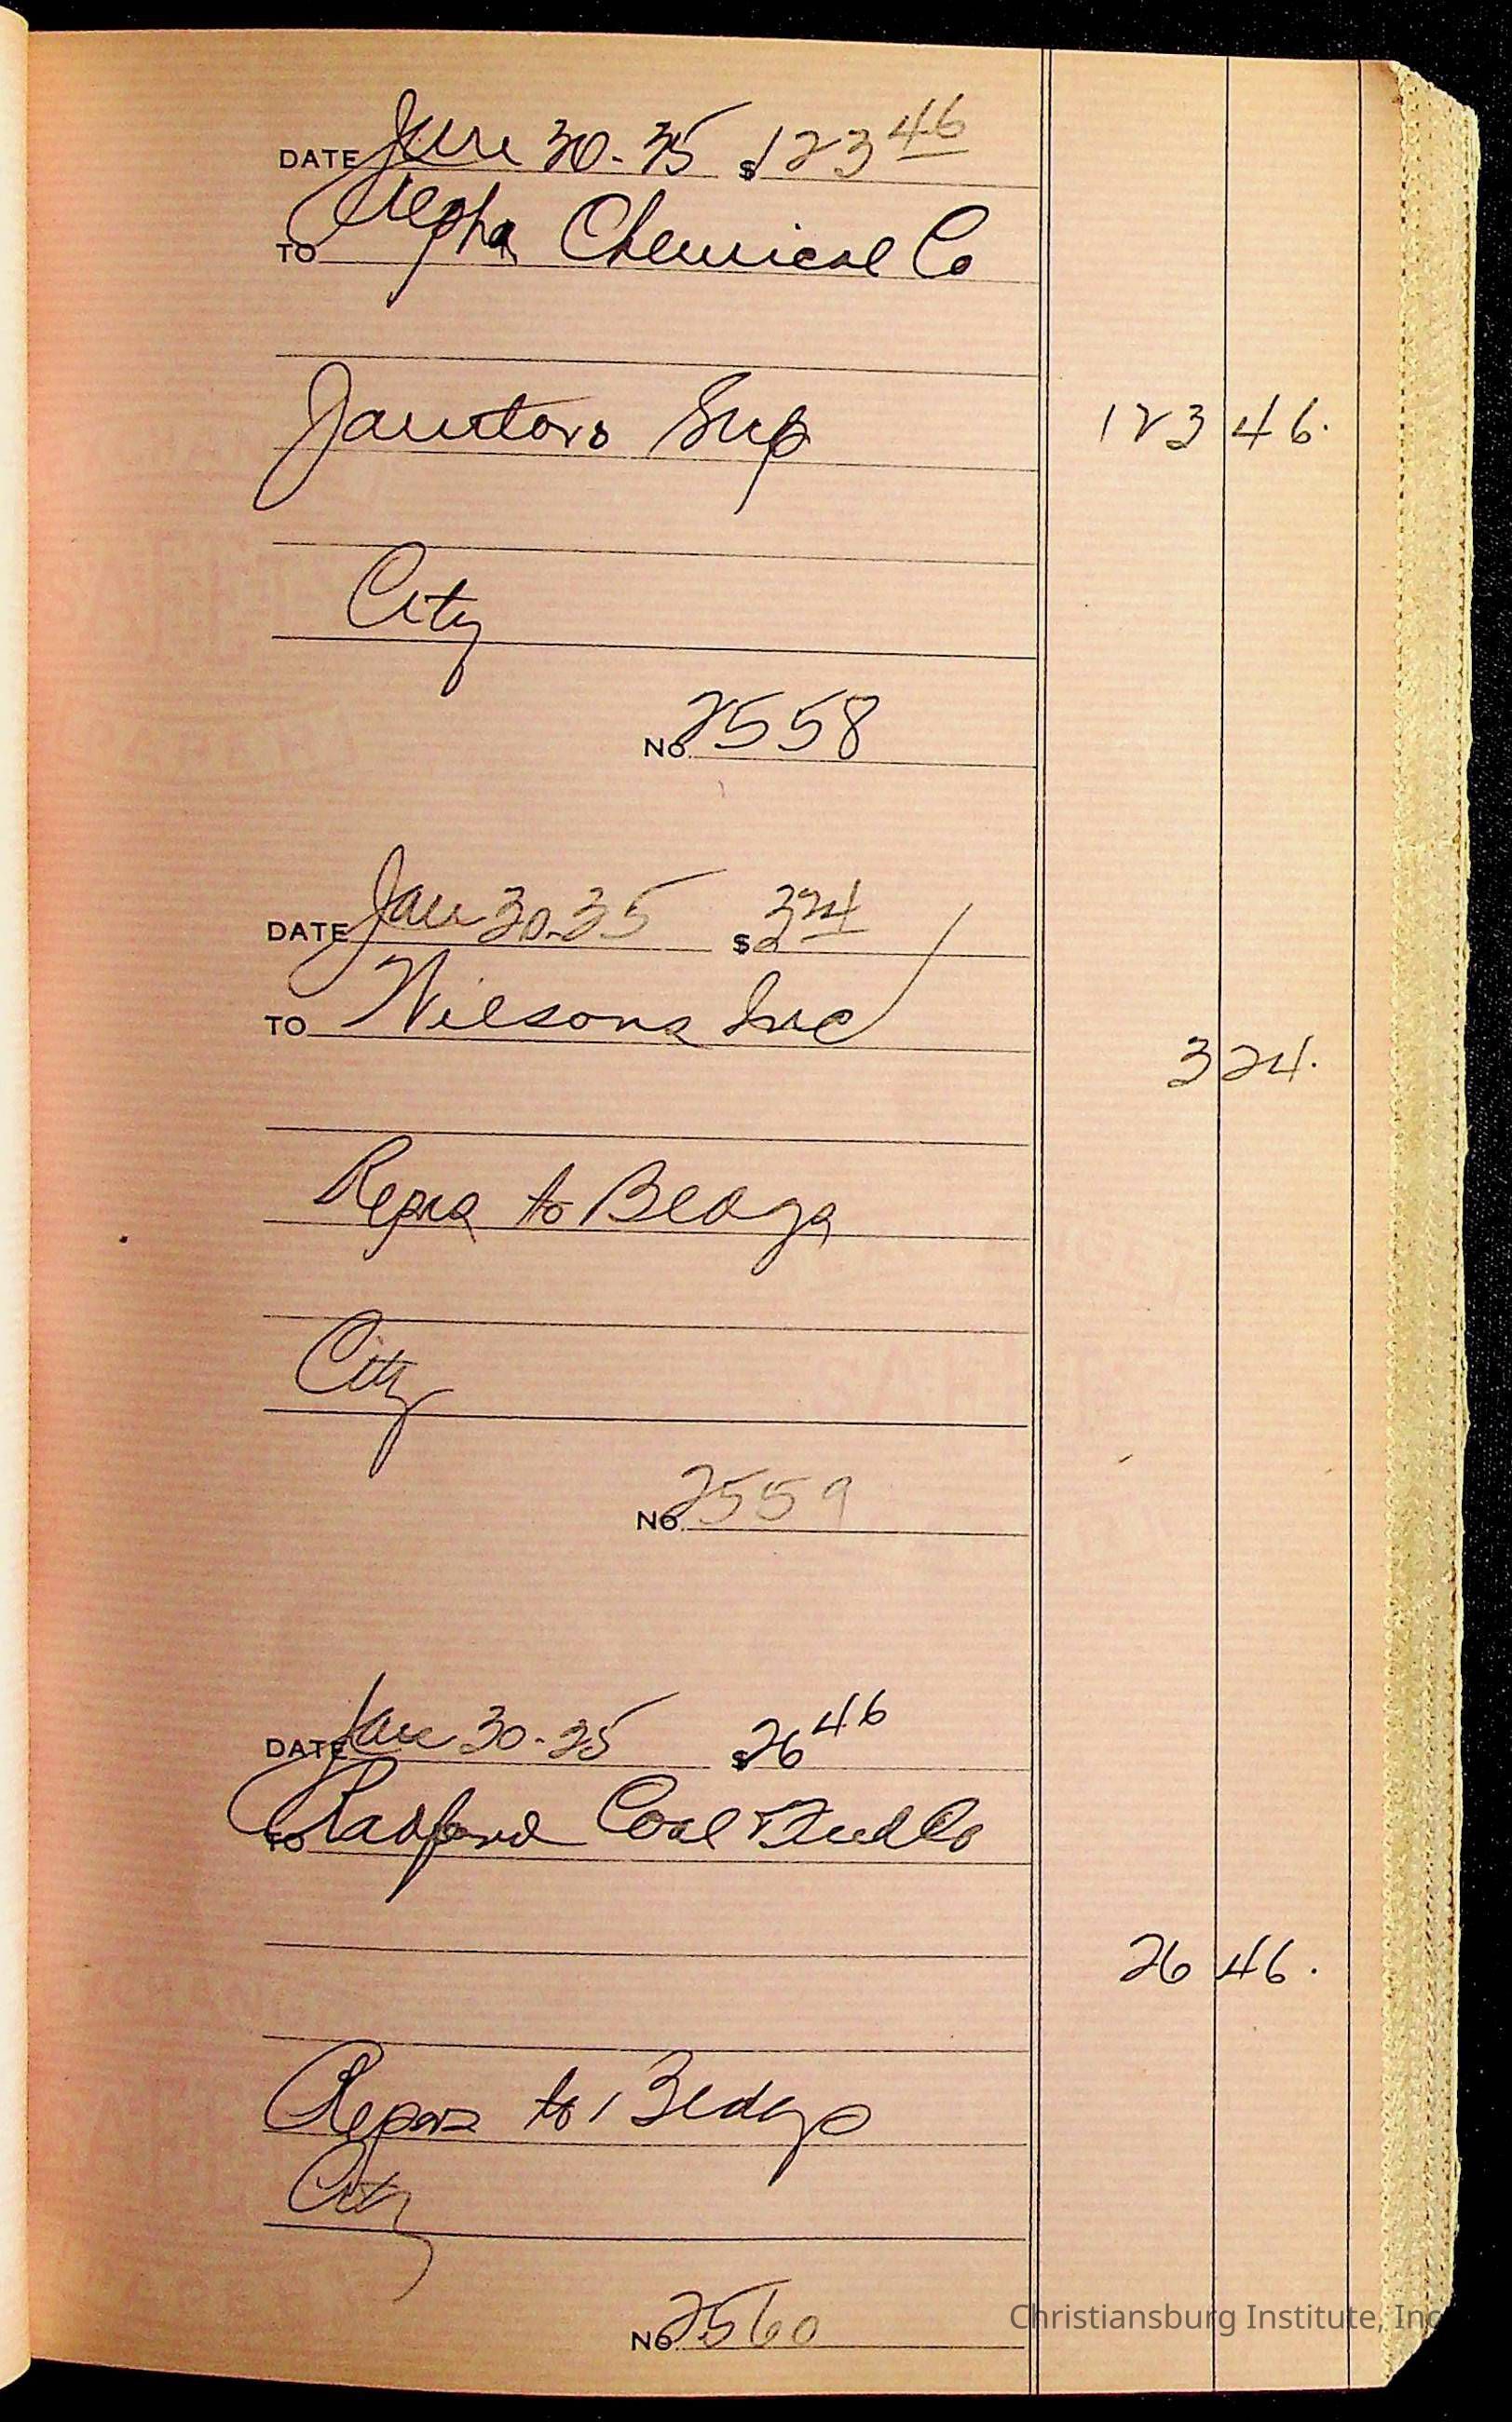 DATE June 30-35 $123 46
TO Alpha Chemical Co
Janitors Sup 123 46.
City
No. 2558
DATE Jan 30-35 $3 24
TO Wilsons Inc
3 24.
Reprs to Bldgs
City
No. 2559
DATE Jan 30-35 $26 46
TO Radford Coal & Feed Co
26 46.
Repars to Bldgs
City
No. 2560
Christiansburg Institute, Inc